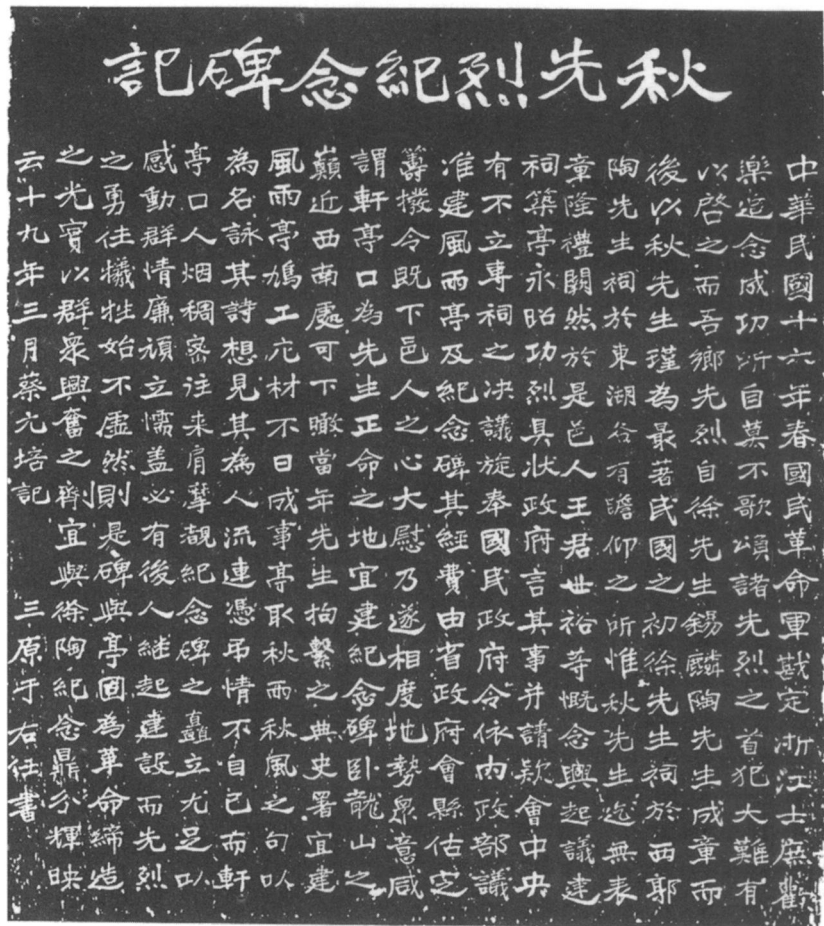 秋先烈紀念碑記
中華民國十六年春國民革命軍戡定浙江士庶歡
樂追念成功所自莫不歌頌諸先烈之首犯大難有
以啓之而吾鄉先烈自徐先生錫麟陶先生成章而
後以秋先生瑾為最著民國之初徐先生祠於西郭
陶先生祠於東湖各有瞻仰之所惟秋先生迄無表
章隆禮闕然於是邑人王君世裕等慨念興起議建
祠築亭永昭功烈具狀政府言其事并請款會中央
有不立專祠之決議旋奉國民政府令依內政部議
准建風雨亭及紀念碑其經費由省政府會縣估定
籌撥令既下邑人之心大慰乃遂相度地勢眾意咸
謂軒亭口為先生正命之地宜建紀念碑卧龍山之
巔近西南處可下瞰當年先生拘繫之典史署宜建
風雨亭鳩工庀材不日成事亭取秋雨秋風之句以
為名詠其詩想見其為人流連憑弔情不自已而軒
亭口人烟稠密往来肩摩覩紀念碑之矗立尤足以
感動群情廉頑立懦盖必有後人繼起建設而先烈
之勇往犧牲始不虛然則是碑與亭固為革命締造
之光實以群衆興奮之劑宜與徐陶紀念鼎分輝映
云十九年三月蔡元培記　三原于右任書